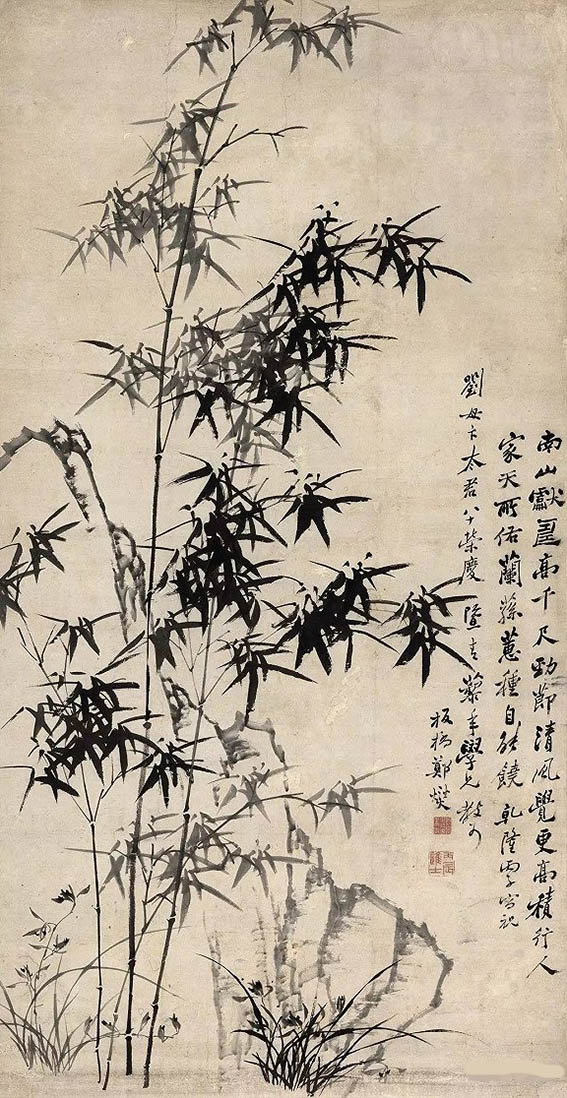 南山獻壽高千尺勁節清風覺更高積行人
家天所佑蘭蓀蕙種自能饒 乾隆丙子寫祝
劉母卞太君八十榮慶
學兄教可
板橋鄭燮
丙辰
進士